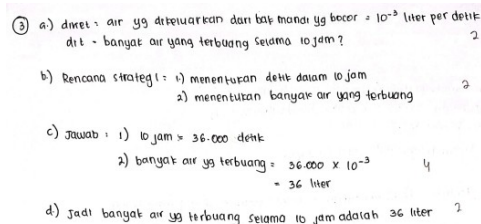 ③ a.) diket : air yg dikeluarkan dari bak mandi yg bocor = 10⁻³ liter per detik
dit - banyak air yang terbuang selama 10 jam ? 2
b.) Rencana strategi : 1) menentukan detik dalam 10 jam
2) menentukan banyak air yang terbuang 2
c) Jawab : 1) 10 jam = 36.000 detik
2) banyak air yg terbuang = 36.000 x 10⁻³ 4
= 36 liter
d) Jadi banyak air yg terbuang selama 10 jam adalah 36 liter 2